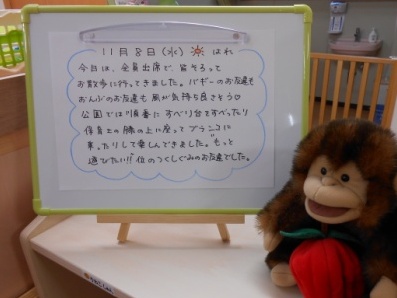 11月8日(水) はれ
今日は、全員出席で、皆そろって
お散歩に行ってきました。バギーのお友達も
おんぶのお友達も風が気持ち良さそう♡
公園では順番にすべり台ですべったり
保育士の膝の上に座ってブランコに
乗ったりして楽しんできました。"もっと
遊びたい!!"位のつくしぐみのお友達でした。